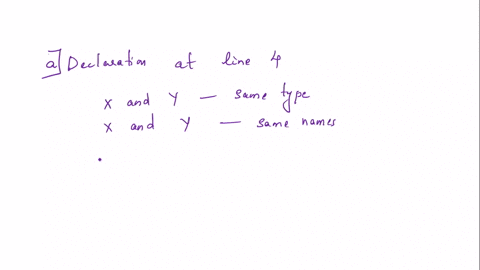 a] Declaration at line 4
X and Y — same type
X and Y — same names